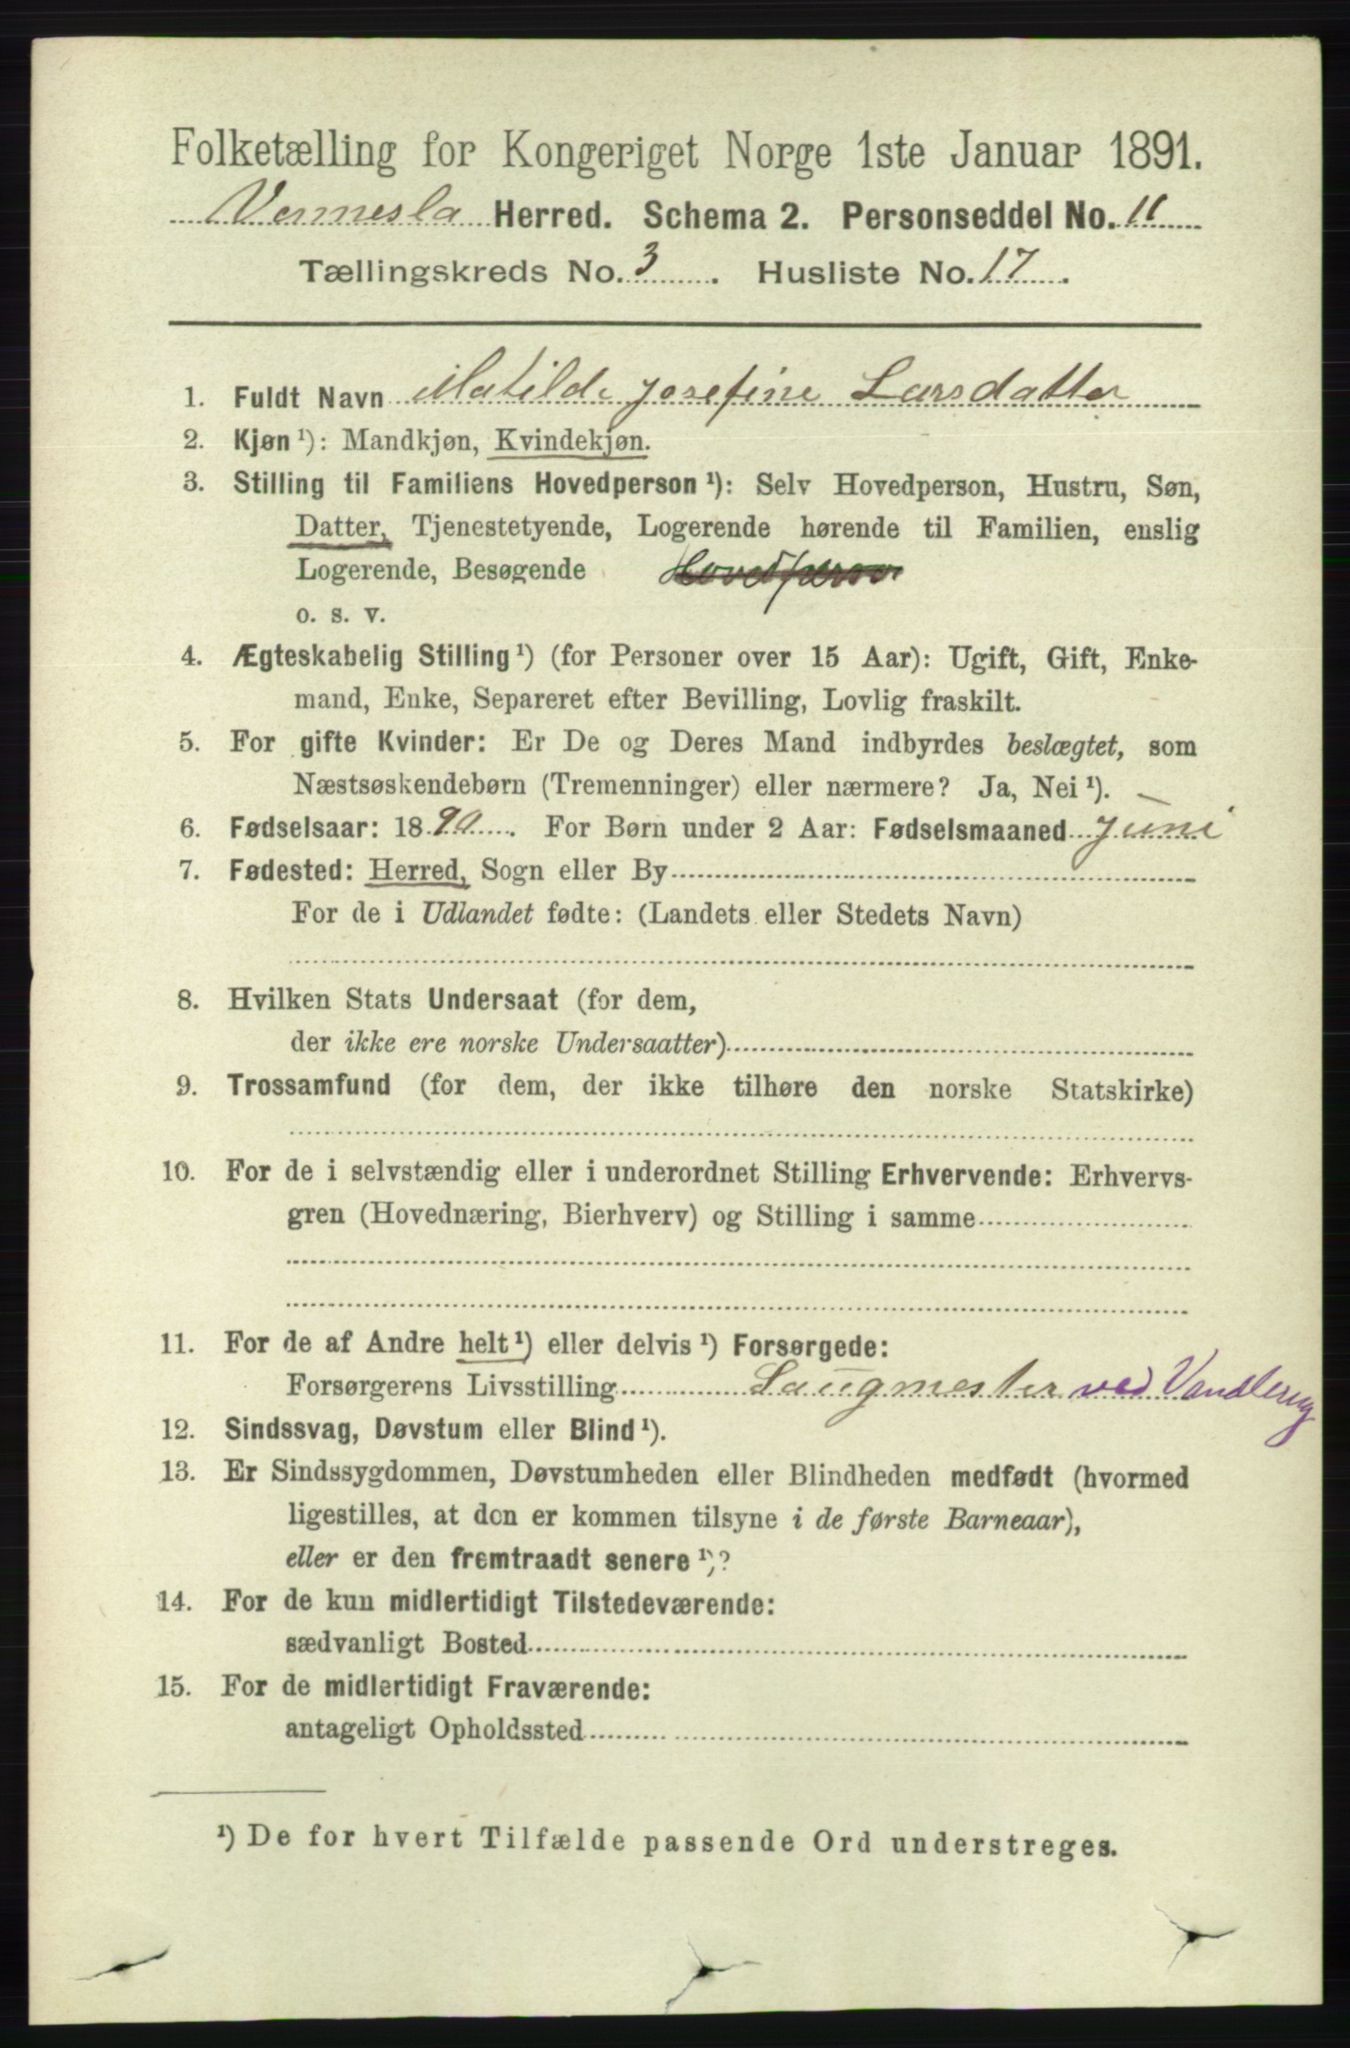 Folketælling for Kongeriget Norge 1ste Januar 1891.
Vennesla Herred. Schema 2. Personseddel No. 11
Tællingskreds No. 3. Husliste No. 17.
1. Fuldt Navn Matilde Josefine Larsdatter
2. Kjøn ¹): Mandkjøn, Kvindekjøn.
3. Stilling til Familiens Hovedperson ¹): Selv Hovedperson, Hustru, Søn,
Datter, Tjenestetyende, Logerende hørende til Familien, enslig
Logerende, Besøgende Hovedperson
o. s. v.
4. Ægteskabelig Stilling ¹) (for Personer over 15 Aar): Ugift, Gift, Enke-
mand, Enke, Separeret efter Bevilling, Lovlig fraskilt.
5. For gifte Kvinder: Er De og Deres Mand indbyrdes beslægtet, som
Næstsøskendebørn (Tremenninger) eller nærmere? Ja, Nei ¹).
6. Fødselsaar: 1890. For Børn under 2 Aar: Fødselsmaaned Juni
7. Fødested: Herred, Sogn eller By
For de i Udlandet fødte: (Landets eller Stedets Navn)
8. Hvilken Stats Undersaat (for dem,
der ikke ere norske Undersaatter)
9. Trossamfund (for dem, der ikke tilhøre den norske Statskirke)
10. For de i selvstændig eller i underordnet Stilling Erhvervende: Erhvervs-
gren (Hovednæring, Bierhverv) og Stilling i samme
11. For de af Andre helt ¹) eller delvis ¹) Forsørgede:
Forsørgerens Livsstilling Saugmester ved
12. Sindssvag, Døvstum eller Blind ¹).
13. Er Sindssygdommen, Døvstumheden eller Blindheden medfødt (hvormed
ligestilles, at den er kommen tilsyne i de første Barneaar),
eller er den fremtraadt senere ¹)?
14. For de kun midlertidigt Tilstedeværende:
sædvanligt Bosted
15. For de midlertidigt Fraværende:
antageligt Opholdssted
¹) De for hvert Tilfælde passende Ord understreges.